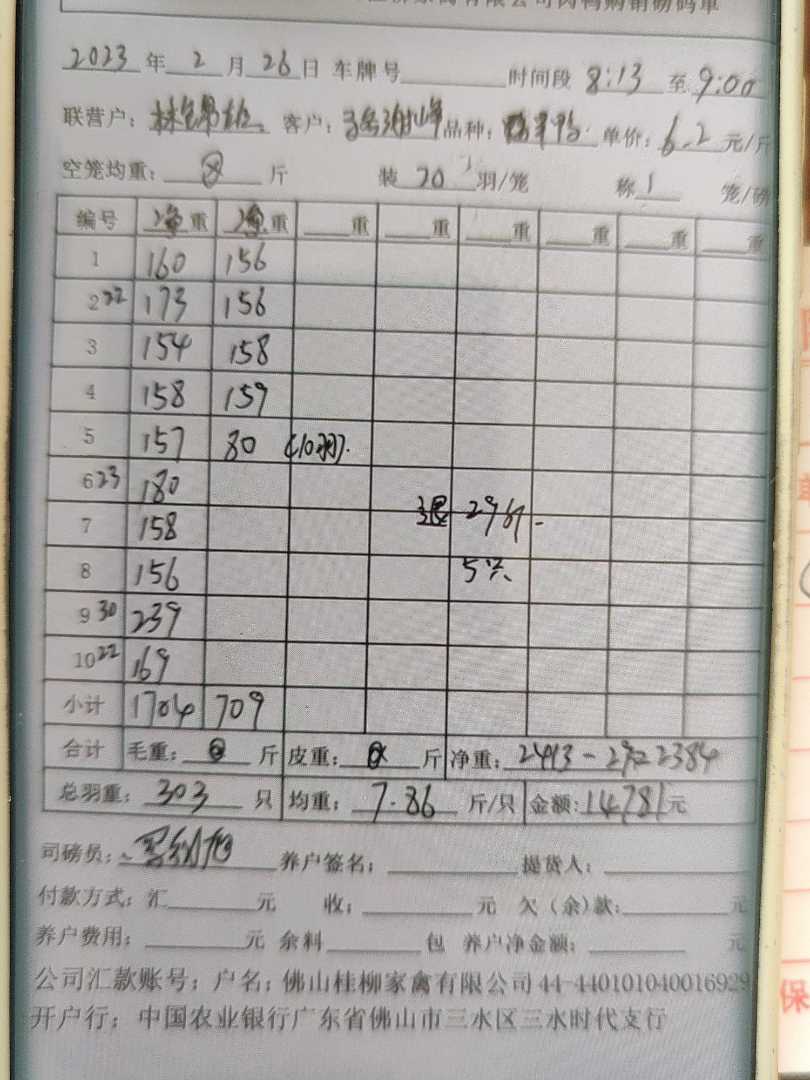 家禽有限公司肉鸭购销磅码单
2023 年 2 月 26 日 车牌号 时间段 8:13 至 9:00
联营户: 客户: 品种: 单价: 6.2 元/斤
空笼均重: 斤 装 20 羽/笼 称 1 笼/磅
编号 净重 净重 重 重 重 重 重 重
1 160 156
2 22 173 156
3 154 158
4 158 159
5 157 80 (10羽).
6 23 180
7 158 退 29斤-
8 156 5只
9 30 239
10 22 169
小计 1704 709
合计 毛重: 斤 皮重: 斤 净重: 2413-29=2384
总羽重: 303 只 均重: 7.86 斤/只 金额: 14781元
司磅员: 养户签名: 提货人:
付款方式: 汇 元 收: 元 欠(余)款: 元
养户费用: 元 余料 包 养户净金额: 元
公司汇款账号: 户名: 佛山桂柳家禽有限公司 44-440101040016929
开户行: 中国农业银行广东省佛山市三水区三水时代支行
保